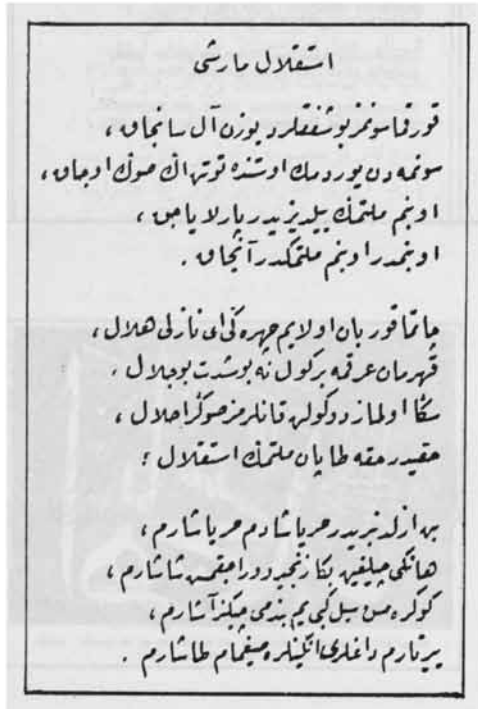 استقلال مارشی
قورقما سونمز بو شفقلرده یوزن آل سانجاق ،
سونمه دن یوردمك اوستنده توتن اڭ صوڭ اوجاق ،
او بنم ملتمڭ ییلدیزیدر پارلایاجق ،
او بنمدر او بنم ملتمكدر آنجاق .
چاتما قوربان اولایم چهره ڭی ای نازلی هلال ،
قهرمان عرقمه بر كول نه بو شدت بو جلال ،
سڭا اولماز دوكولن قانلرمز صوڭرا حلال ،
حقیدر حقه طاپان ملتمڭ استقلال ؛
بن ازلدنبریدر حر یاشادم حر یاشارم ،
هانگی چیلغین بڭا زنجیر ووراجقمش شاشارم ،
كوكره مش سیل كبی یم بندمی چیكنر آشارم ،
ییرتارم داغلری انگینلره صیغمام طاشارم .